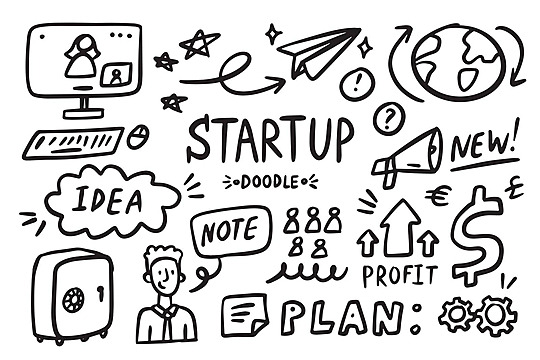 STARTUP
DOODLE
!
?
NEW!
IDEA
NOTE
€
£
$
PROFIT
PLAN: